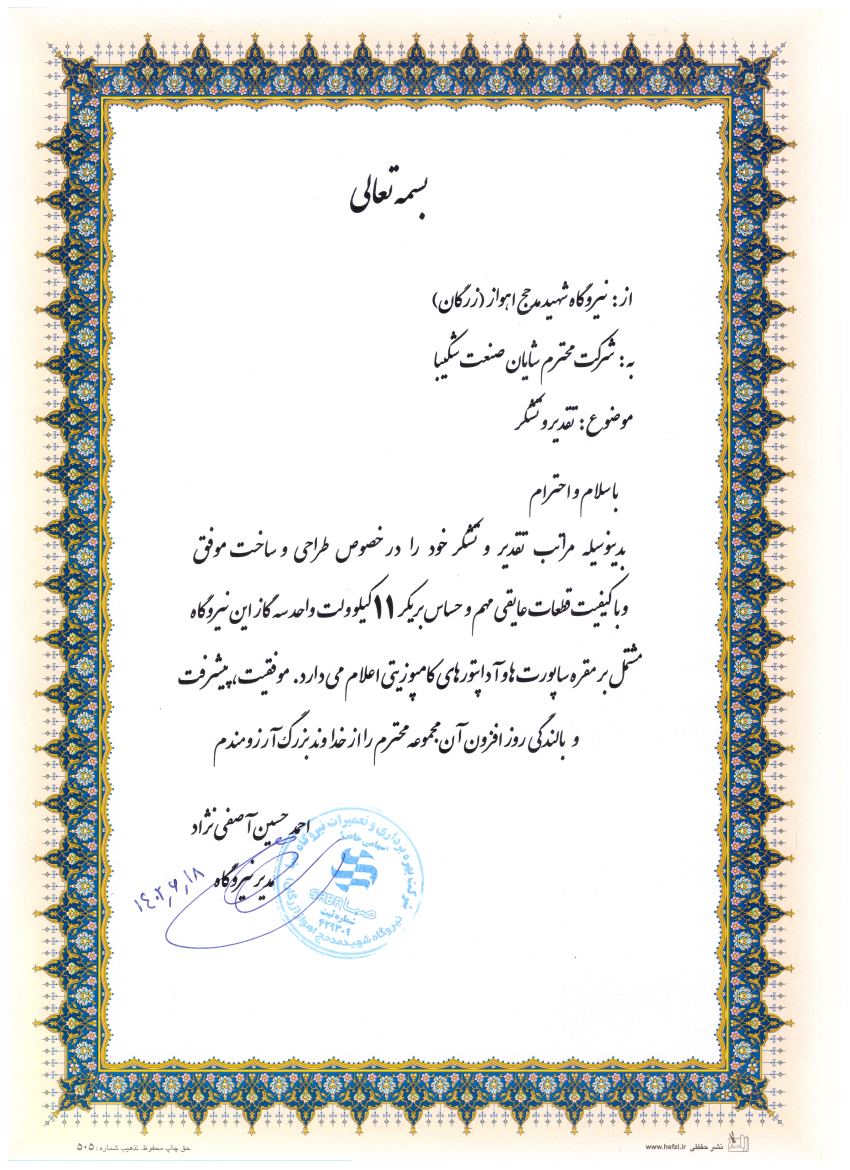 بسمه تعالی
از: نیروگاه شهید مدحج اهواز (زرگان)
به: شرکت محترم شایان صنعت شکیبا
موضوع: تقدیر و تشکر
با سلام و احترام
بدینوسیله مراتب تقدیر و تشکر خود را در خصوص طراحی و ساخت موفق
و با کیفیت قطعات عایقی مهم و حساس بریکر ۱۱ کیلو ولت واحد سه گاز این نیروگاه
مشتمل بر مقره ساپورت ها و آداپتورهای کامپوزیتی اعلام می دارد. موفقیت، پیشرفت
و بالندگی روز افزون آن مجموعه محترم را از خداوند بزرگ آرزومندم
احمد حسین آصفی نژاد
مدیر نیروگاه
شرکت بهره برداری و تعمیرات نیروگاه
(سهامی خاص)
SABA
صبا
شماره ثبت
۴۲۹۳۰۹
نیروگاه شهید مدحج اهواز (زرگان)
حق چاپ محفوظ. تذهیب شماره: ۵۰۵
نشر حفظی www.hefzi.ir